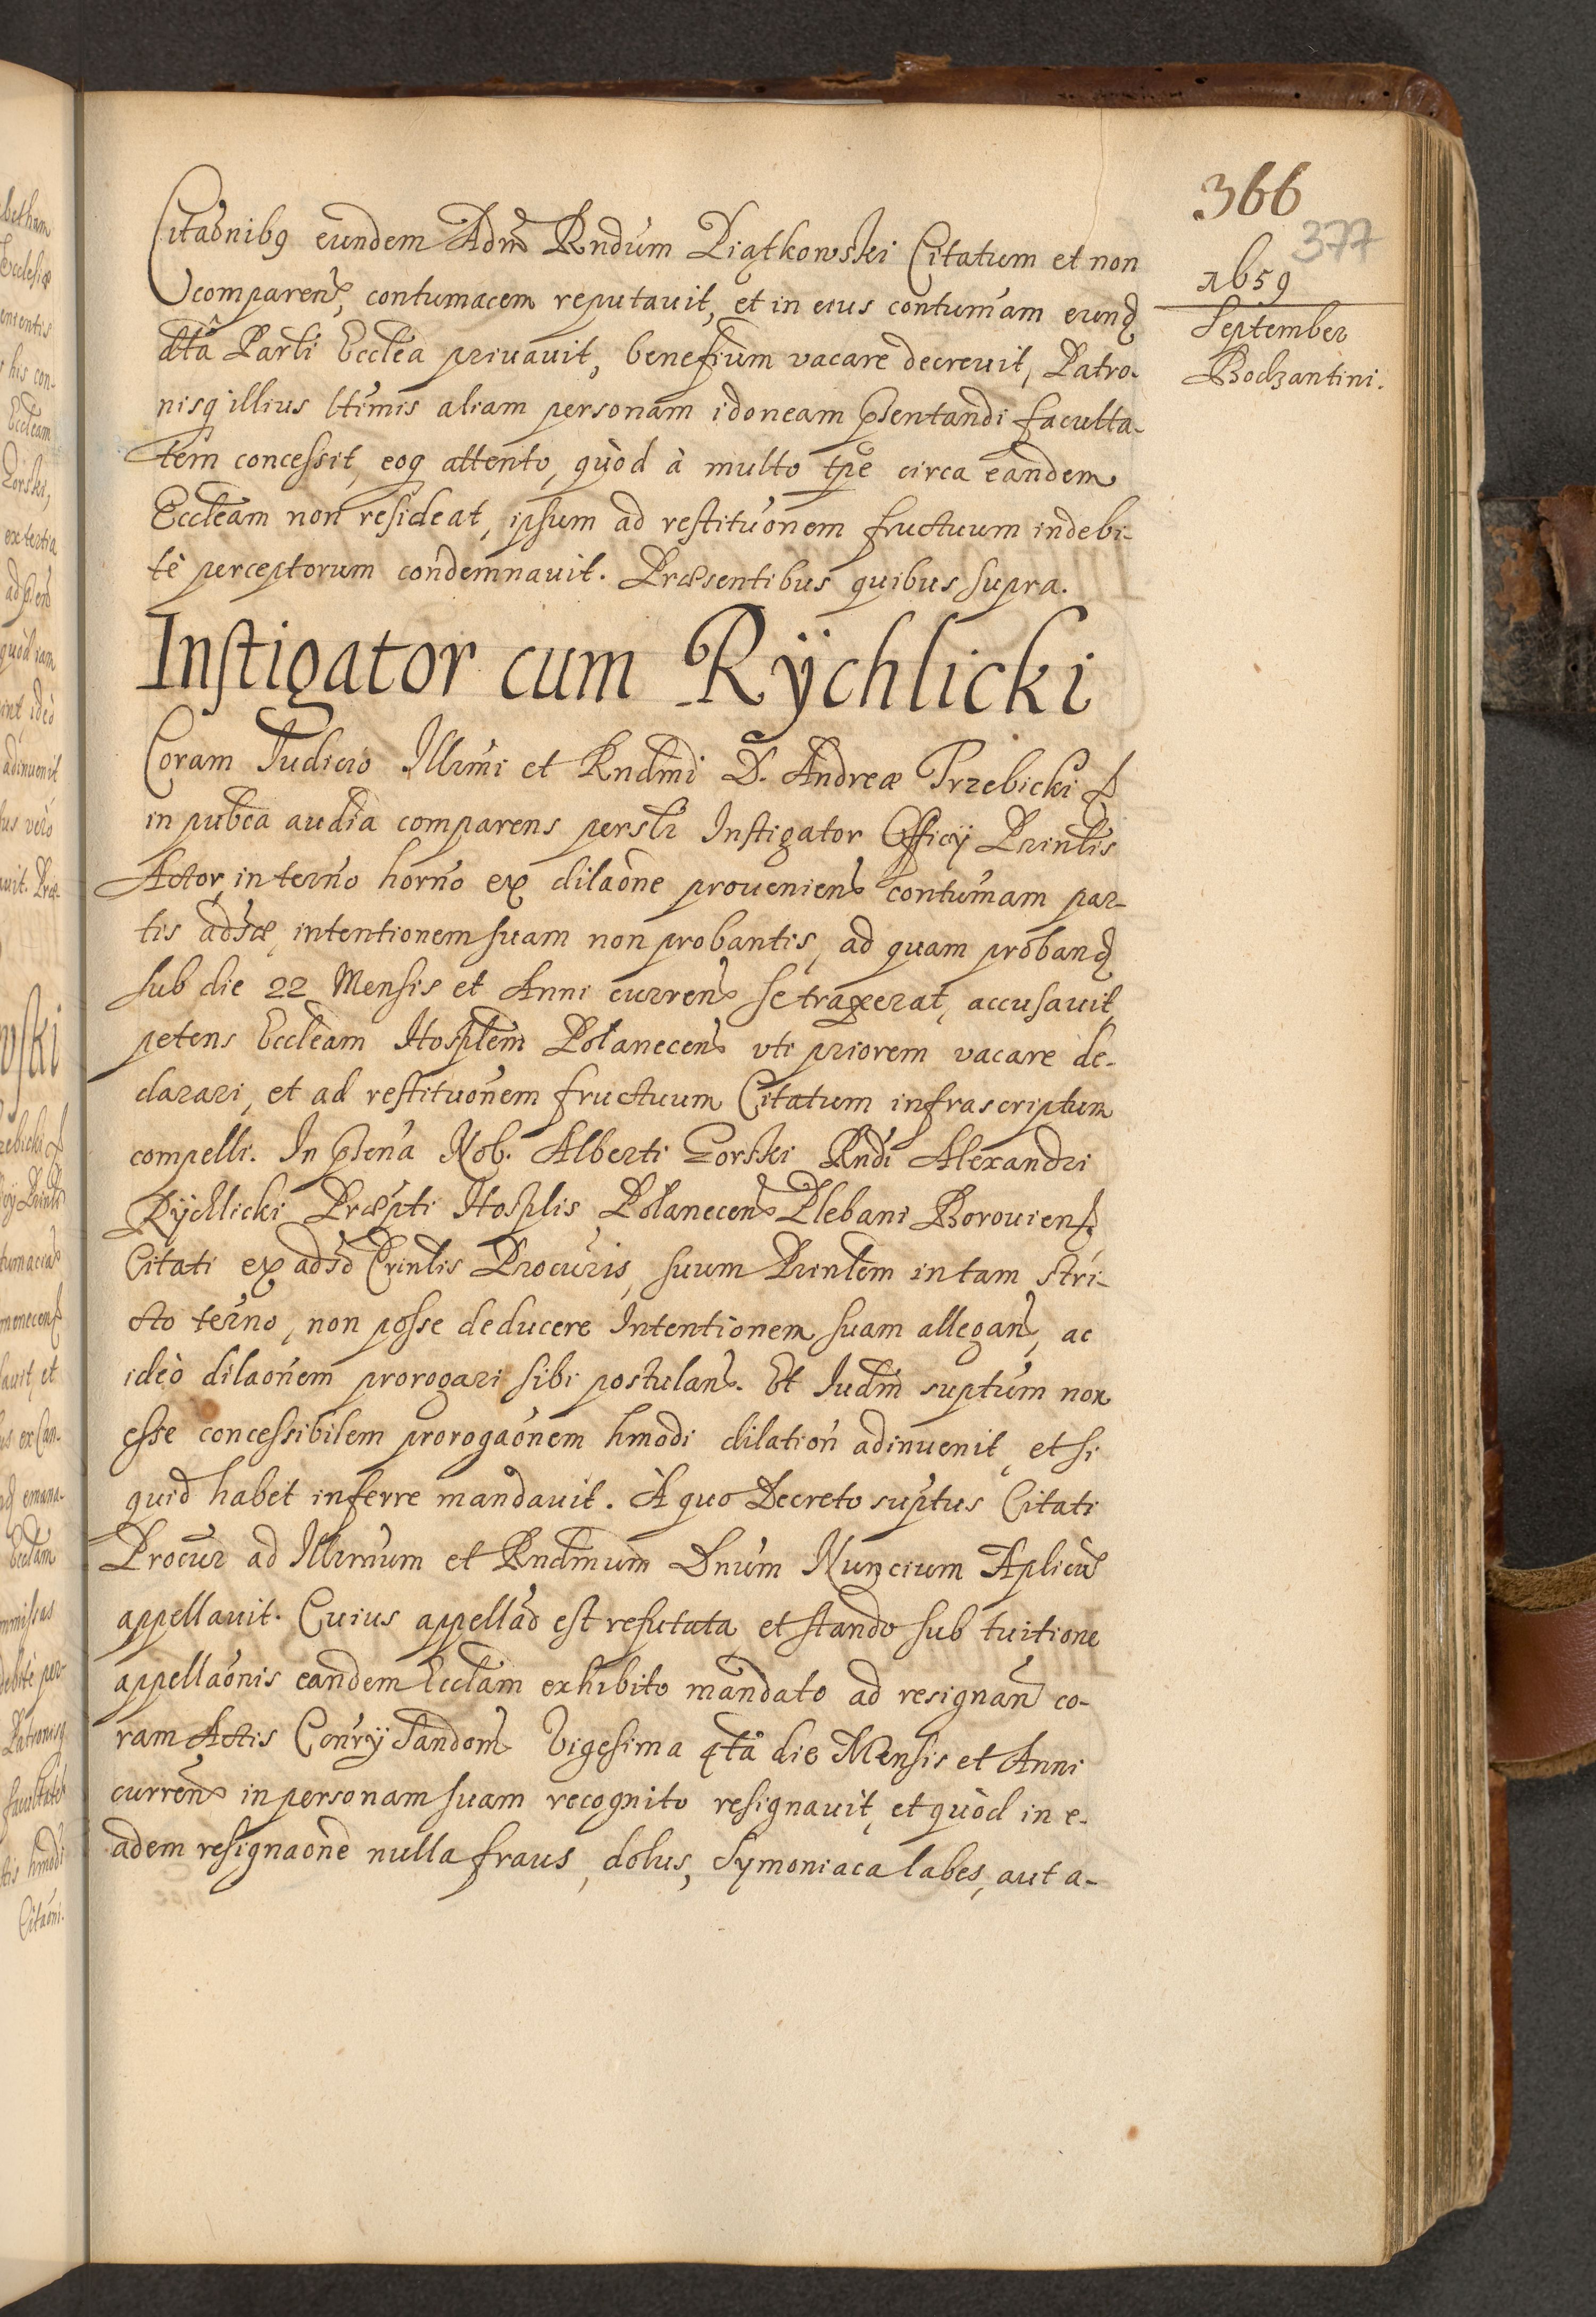 366
377
1659
September
Bodzantini.
Citaõnibq eundem Adm̃ Rndũm Piątkowski Citatum et non
comparen̄, contumacem reputavit, et in eius contumãm eund
dtâ Parli Ecclẽa privavit, benefiũm vacare decrevit, Patro-
nisq illius ltĩmis aliam personam idoneam pñsentandi faculta-
tem concessit, eoq attento, quòd à multo tp̃e circa eandem
Ecclẽam non resideat, ipsum ad restituõnem fructuum indebi-
tè perceptorum condemnavit. Præsentibus quibus supra.
Instigator cum Rÿchlicki
Coram Judicio Illr̃mi et Rndm̃i D. Andreæ Trzebicki
in pub̃ca audĩa comparens pers̃lr Instigator Officÿ Prinl̃is
Actor, in ter̃no hor̃no ex dilaõne proveniens contumãm par-
tis adṽsæ, intentionem suam non probantis, ad quam proband
sub die 22 Mensis et Anni curren̄ se traxerat, accusavit,
petens Ecclẽam Hospl̃em Połanecen̄ vti priorem vacare de-
clarari, et ad restituõnem fructuum Citatum infrascriptum
compelli. In pñsen̄a Nob. Alberti Gorski Rndĩ Alexandri
Rÿchlicki Præp̃ti Hospl̃is Połanecen̄ Plebani Borovien̄
Citati ex advõ Prinl̃is Procur̃is, suum Prinl̃em in tam stri-
cto ter̃no, non posse deducere Intentionem suam allegan̄, ac
ideò dilaõnem prorogari sibi postulan̄. Et Iudm̃ supt̃um non
esse concessibilem prorogaõnem hmõdi dilatioñ adinvenit, et si
quid habet inferre mandavit. À quo Decreto supt̃us Citati
Procur̃ ad Illr̃mum et Rndm̃um Dnũm Nuncium Aplicũ
appellavit. Cuius appellaõ est refutata, et stando sub tuitione
appellaõnis eandem Ecclãm exhibito mandato ad resignan̄ co-
ram Actis Conr̃ÿ Sandom̄ Vigesima 4tâ die Mensis et Anni
curren̄ in personam suam recognito resignavit, et quòd in e-
adem resignaõne nulla fraus, dolus, Symoniaca labes, aut a-